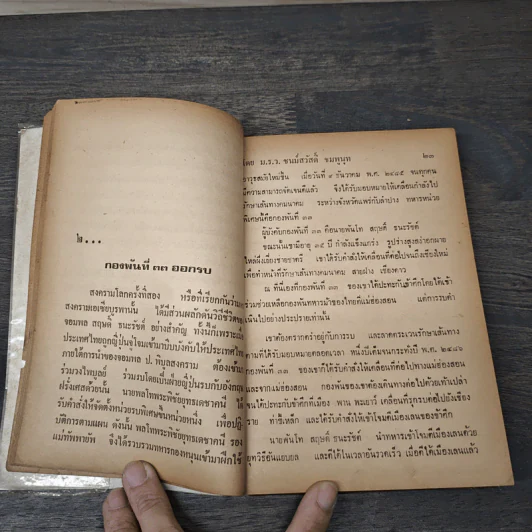 ๒...
กองพันที่ ๓๓ ออกรบ
สงครามโลกครั้งที่สอง หรือที่เรียกกันว่า
สงครามเอเซียบูรพานั้น ได้มีส่วนผลักดันวิถีชีวิต
จอมพล สฤษดิ์ ธนะรัชต์ อย่างสำคัญ ทั้งนี้ก็เพราะเมื่อ
ประเทศไทยถูกญี่ปุ่นจู่โจมเข้ามาบีบบังคับให้ประเทศไทย
ภายใต้การนำของจอมพล ป. พิบูลสงคราม ต้องเข้า
ร่วมวงไพบูลย์ ร่วมรบโดยเป็นฝ่ายญี่ปุ่นรบกับอังกฤษ
ฝรั่งเศสด้วยนั้น นายพลไพรพิริยยุทธเดชาคนี้ ได้
รับคำสั่งให้จัดตั้งหน่วยรบพิเศษขึ้นหน่วยหนึ่ง เพื่อปฏิ
บัติการตามแผน ดังนั้น พลโทพระพิชัยยุทธเดชาคนี รอง
แม่ทัพพายัพ จึงได้รวบรวมทหารกองหนุนเข้ามาฝึกใช้
โดย ม.ร.ว. ชนม์สวัสดิ์ ชมพูนุท ๒๓
อาวุธสมัยใหม่ขึ้น เมื่อวันที่ ๙ ธันวาคม พ.ศ. ๒๔๘๕ จนทุกคน
มีความสามารถจัดเจนดีแล้ว จึงได้รับมอบหมายให้เคลื่อนกำลังไป
รักษาเส้นทางคมนาคม ระหว่างจังหวัดแพร่กับลำปาง ทหารหน่วย
พิเศษนี้คือกองพันที่ ๓๓
ผู้บังคับกองพันที่ ๓๓ คือนายพันโท สฤษดิ์ ธนะรัชต์
ขณะนั้นเขามีอายุ ๓๕ ปี กำลังแข็งแกร่ง รูปร่างสูงสง่างกาย
ใหญ่ผึ่งเยี่ยงชายชาตรี เขาได้รับคำสั่งให้เคลื่อนที่ต่อไปจนถึงเชียงใหม่
เพื่อทำหน้าที่รักษาเส้นทางคมนาคม สายฝาง เชียงดาว
ณ ที่นี้เองที่กองพันที่ ๓๓ ของเขาได้ปะทะกับข้าศึกโดยได้เข้า
ร่วมช่วยเหลือกองพันทหารม้าของไทยตีแม่ฮ่องสอน แต่การรบดำ
เนินไปอย่างประปรายเท่านั้น
เขาต้องตรากตรำอยู่กับการรบ และลาดตระเวนรักษาเส้นทาง
ตามที่ได้รับมอบหมายตลอดเวลา หนึ่งปีเต็มจนกระทั่งปี พ.ศ. ๒๔๘๖
กองพันที่ ๓๓ ของเขาได้รับคำสั่งให้เคลื่อนที่ต่อไปทางแม่ฮ่องสอน
และจากแม่ฮ่องสอน กองพันของเขาต้องเดินทางต่อไปด้วยเท้าเปล่า
จนได้ปะทะกับข้าศึกที่เมือง พาน พะเยาว์ เคลื่อนที่รุกรบต่อไปยังเชียง
ราย ท่าขี้เหล็ก และได้รับคำสั่งให้เข้าโจมตีเมืองเลนของข้าศึก
นายพันโท สฤษดิ์ ธนะรัชต์ นำทหารเข้าโจมตีเมืองเลนด้วย
ยุทธวิธีอันแยบยล และตีได้ในเวลาอันรวดเร็ว เมื่อตีได้เมืองเลนแล้ว